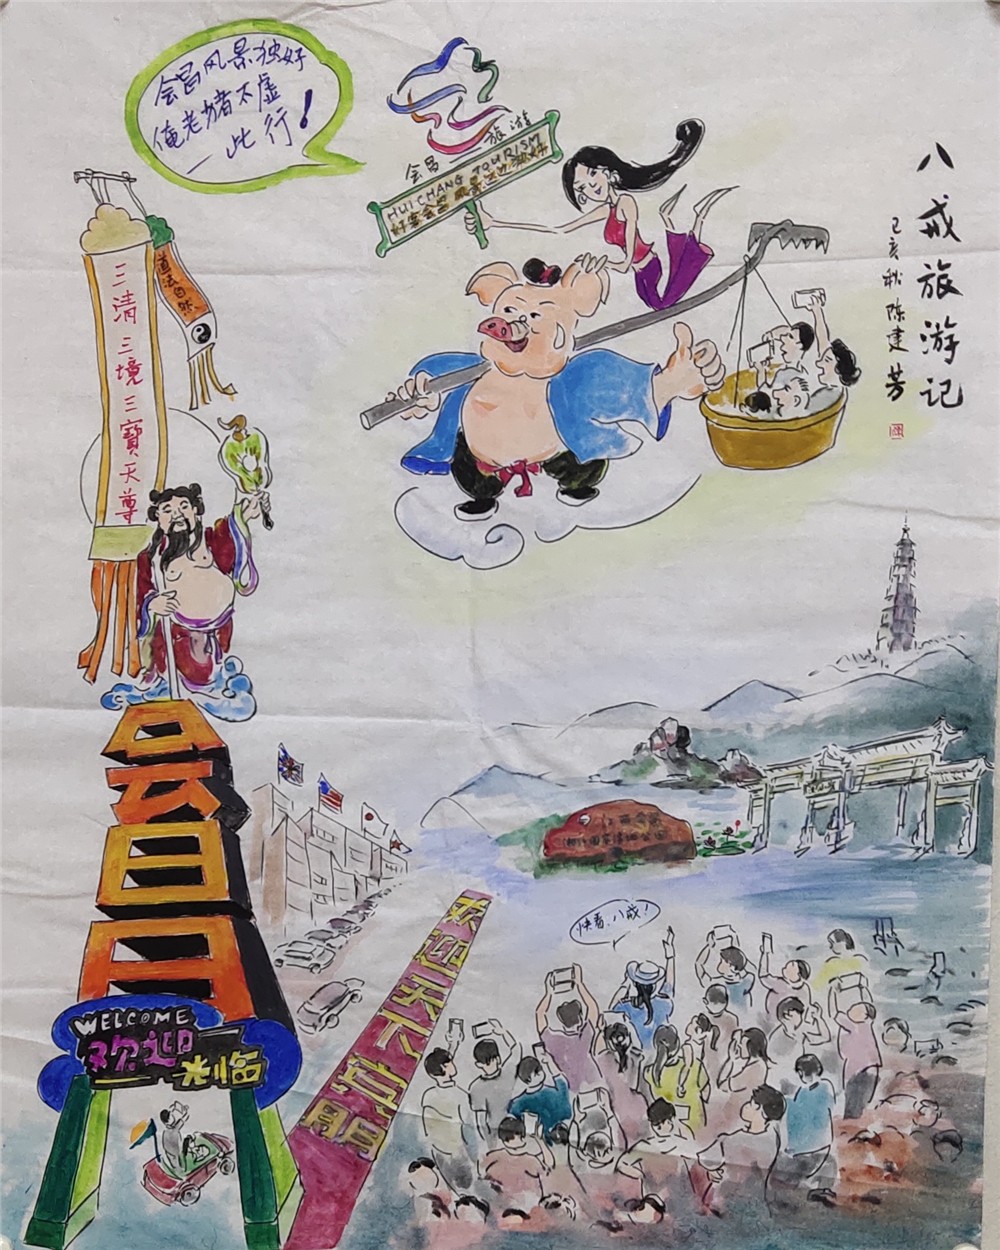 会昌风景独好
俺老猪不虚
一此行！
会昌旅游
HUICHANG TOURISM
好客会昌 风景这边独好
八戒旅游记
己亥秋 陈建芳
道法自然
三清三境三寶天尊
会昌
WELCOME
欢迎
光临
欢迎天下宾朋
快看，八戒！